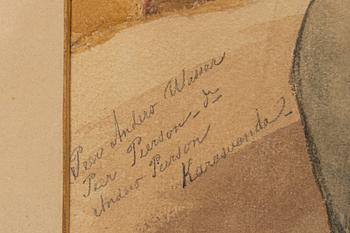 Peer Andero Wassar
Peer Pierson - Jr
Andero Person
"Karaswanda"